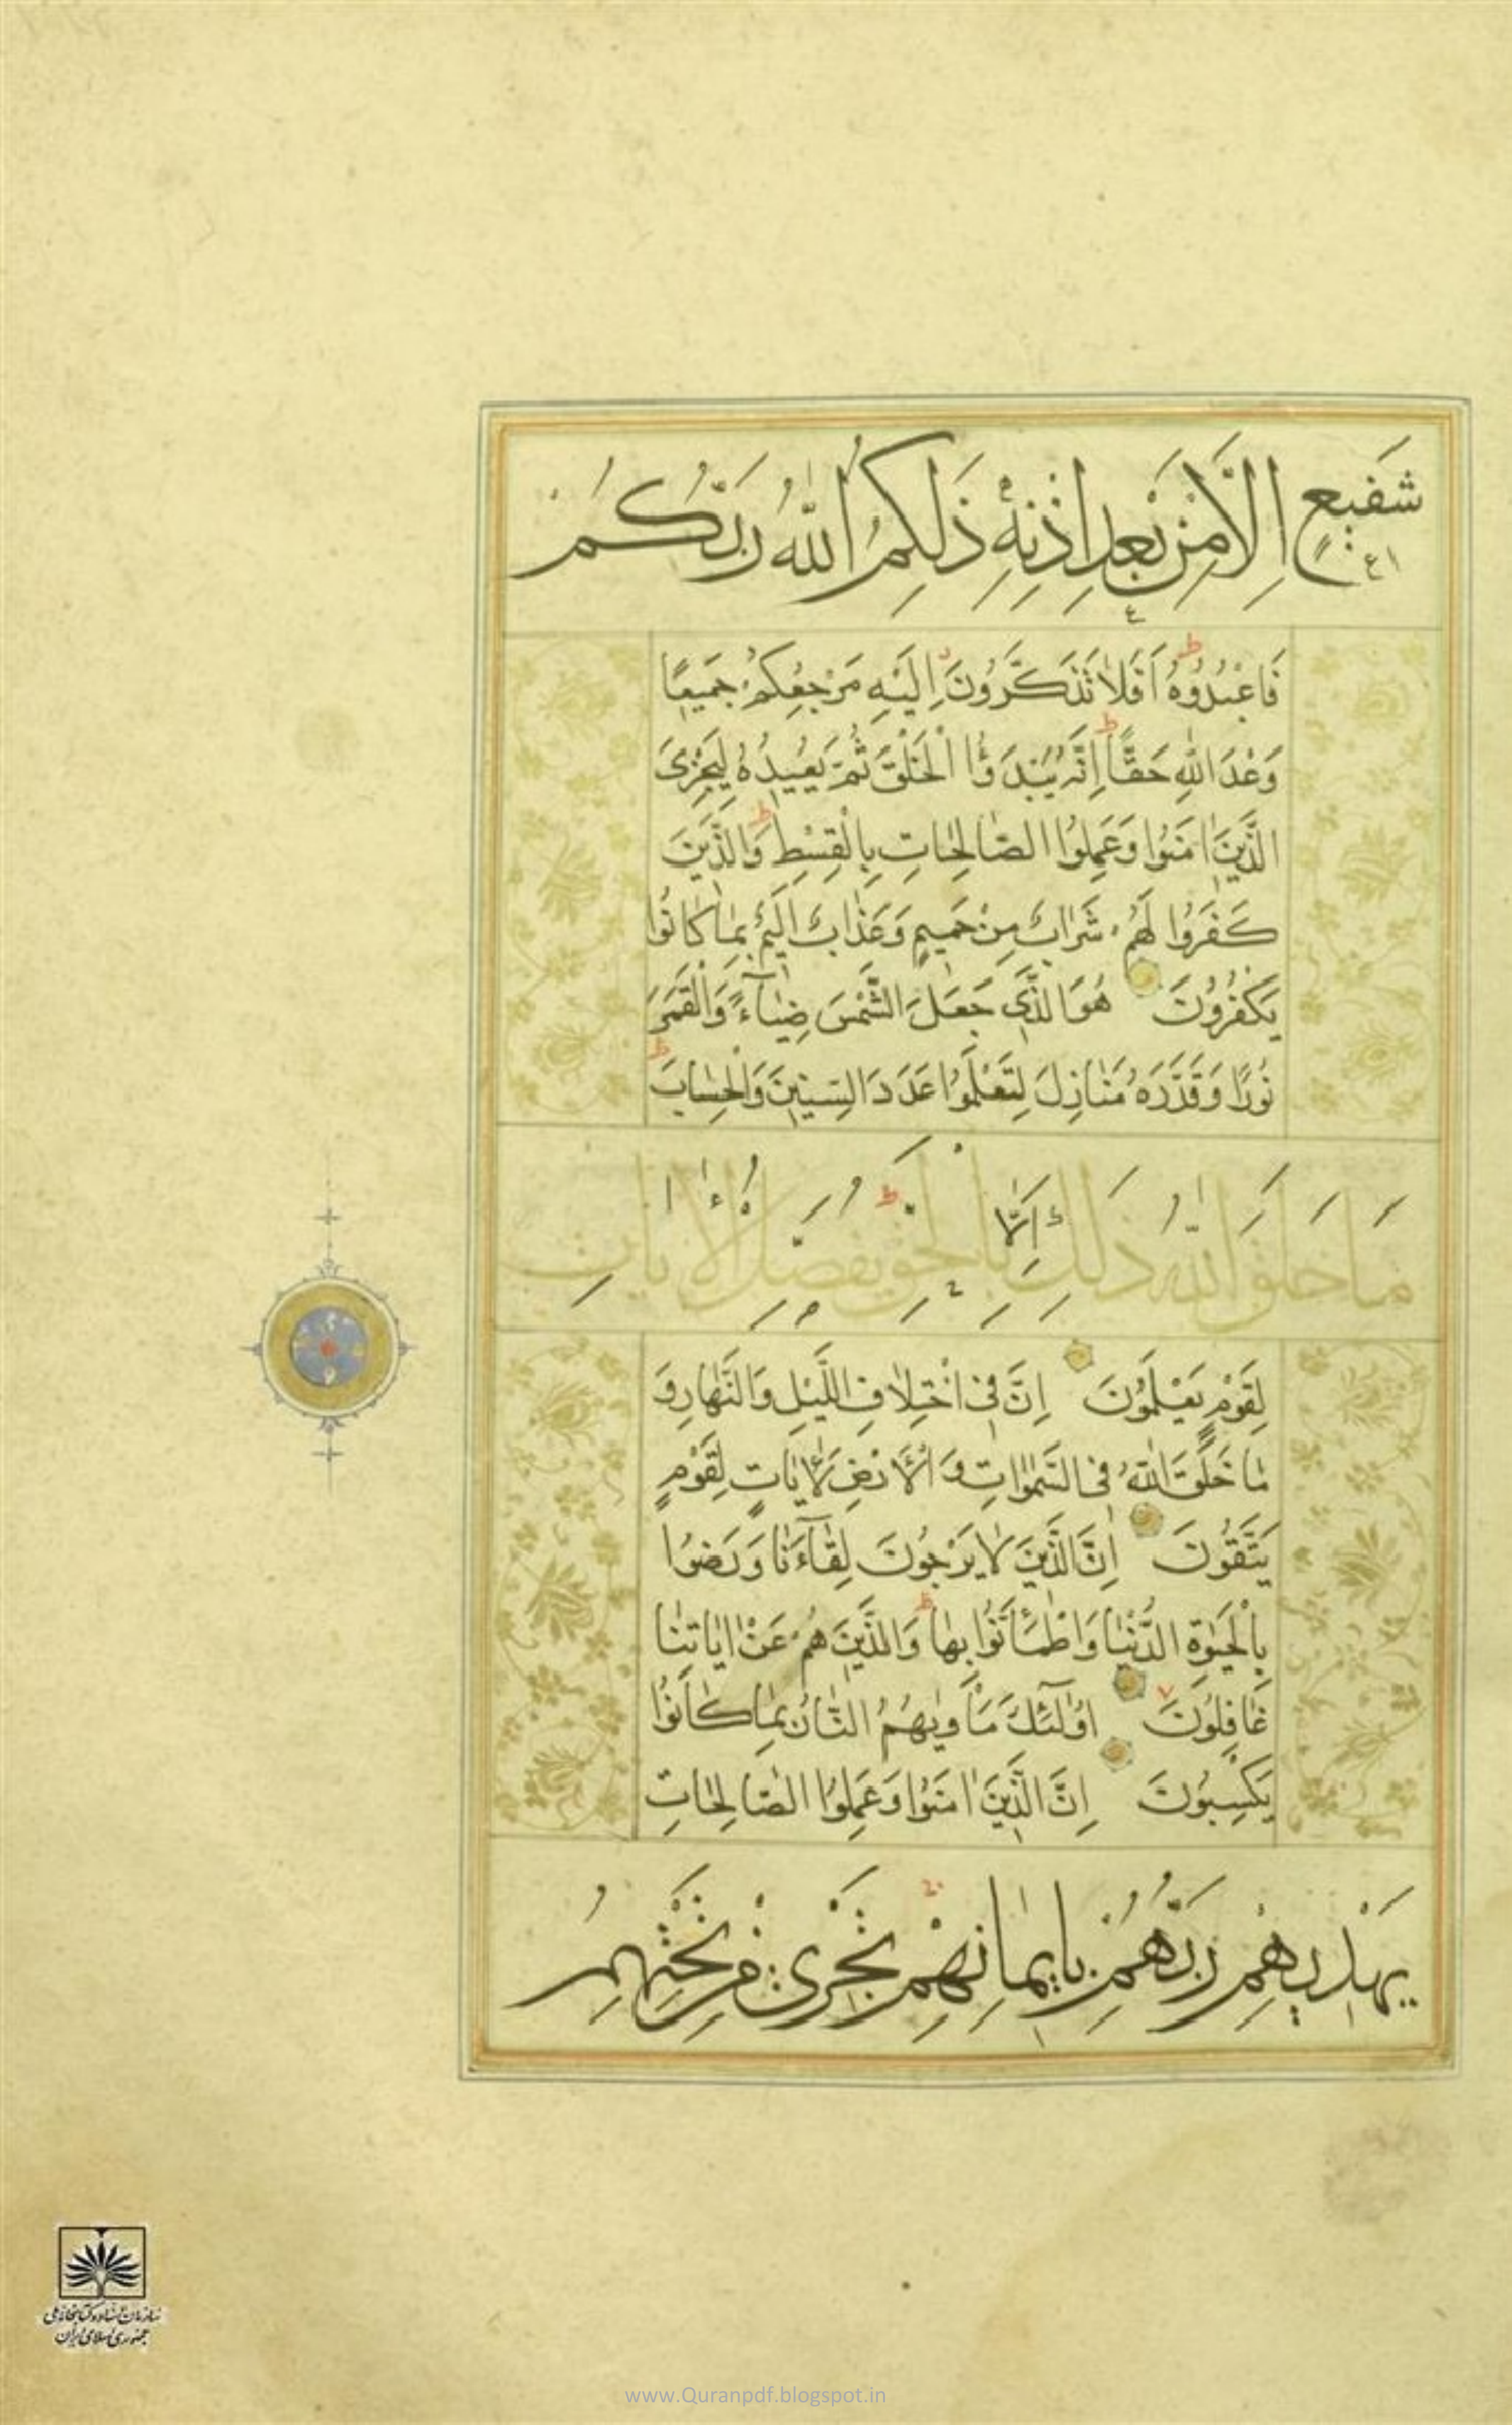 شَفِيعٍ اِلَّا مِنْ بَعْدِ اِذْنِهِ ذَلِكُمُ اللهُ رَبُّكُمْ
فَاعْبُدُوهُ اَفَلَا تَذَكَّرُونَ اِلَيْهِ مَرْجِعُكُمْ جَمِيعًا
وَعْدَ اللهِ حَقًّا اِنَّهُ يَبْدَؤُا الْخَلْقَ ثُمَّ يُعِيدُهُ لِيَجْزِيَ
الَّذِينَ اٰمَنُوا وَعَمِلُوا الصَّالِحَاتِ بِالْقِسْطِ وَالَّذِينَ
كَفَرُوا لَهُمْ شَرَابٌ مِنْ حَمِيمٍ وَعَذَابٌ اَلِيمٌ بِمَا كَانُوا
يَكْفُرُونَ هُوَ الَّذِي جَعَلَ الشَّمْسَ ضِيَآءً وَالْقَمَرَ
نُورًا وَقَدَّرَهُ مَنَازِلَ لِتَعْلَمُوا عَدَدَ السِّنِينَ وَالْحِسَابَ
مَا خَلَقَ اللهُ ذَلِكَ اِلَّا بِالْحَقِّ يُفَصِّلُ الْاٰيَاتِ
لِقَوْمٍ يَعْلَمُونَ اِنَّ فِي اخْتِلَافِ اللَّيْلِ وَالنَّهَارِ وَ
مَا خَلَقَ اللهُ فِي السَّمٰوَاتِ وَالْاَرْضِ لَاٰيَاتٍ لِقَوْمٍ
يَتَّقُونَ اِنَّ الَّذِينَ لَا يَرْجُونَ لِقَآءَنَا وَرَضُوا
بِالْحَيٰوةِ الدُّنْيَا وَاطْمَاَنُّوا بِهَا وَالَّذِينَ هُمْ عَنْ اٰيَاتِنَا
غَافِلُونَ اُولٰٓئِكَ مَاْوٰيهُمُ النَّارُ بِمَا كَانُوا
يَكْسِبُونَ اِنَّ الَّذِينَ اٰمَنُوا وَعَمِلُوا الصَّالِحَاتِ
يَهْدِيهِمْ رَبُّهُمْ بِاِيمَانِهِمْ تَجْرِي مِنْ تَحْتِهِمُ
سازمان اسناد و کتابخانه ملی
جمهوری اسلامی ایران
www.Quranpdf.blogspot.in